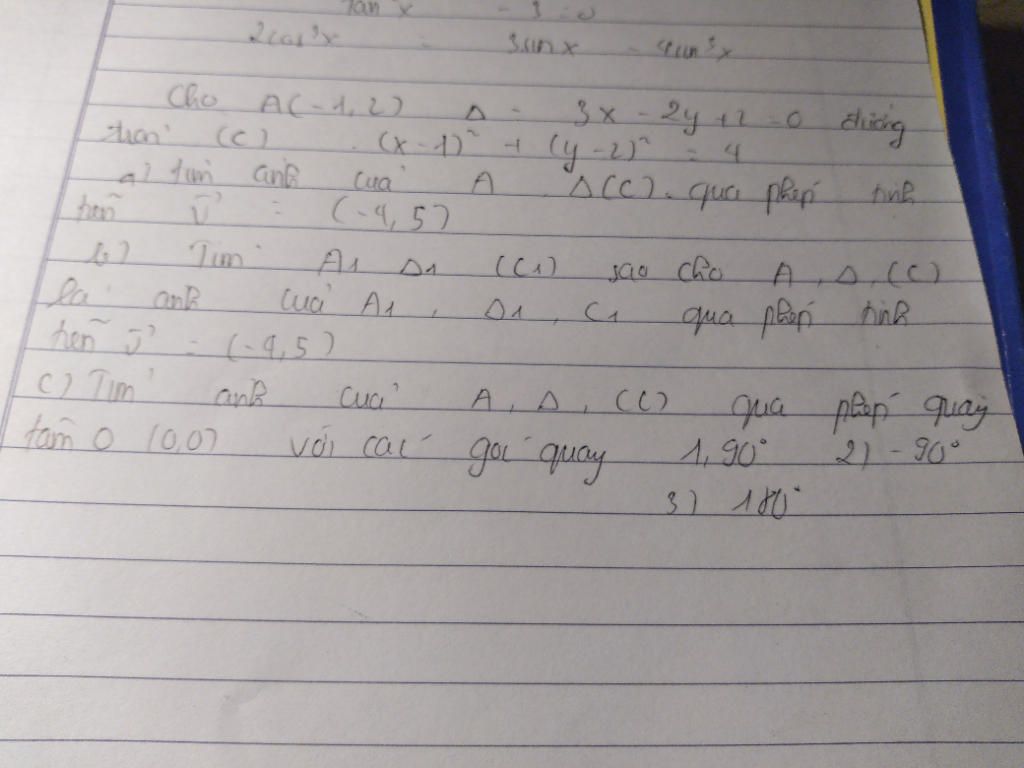 tan x - 3 = 0
2cos³x = 3sinx - 4sin³x
Cho A(-1,2) Δ = 3x - 2y + 2 = 0 đường
tròn (C) . (x-1)² + (y-2)² = 4
a) tìm ảnh của A , Δ (C). qua phép tịnh
tiến v = (-4,5)
b) Tìm A1 Δ1 (C1) sao cho A, Δ, (C)
là ảnh của A1, Δ1, C1 qua phép tịnh
tiến v = (-4,5)
c) Tìm ảnh của A, Δ, (C) qua phép quay
tâm O (0,0) với các góc quay 1, 90° 2) -90°
3) 180°